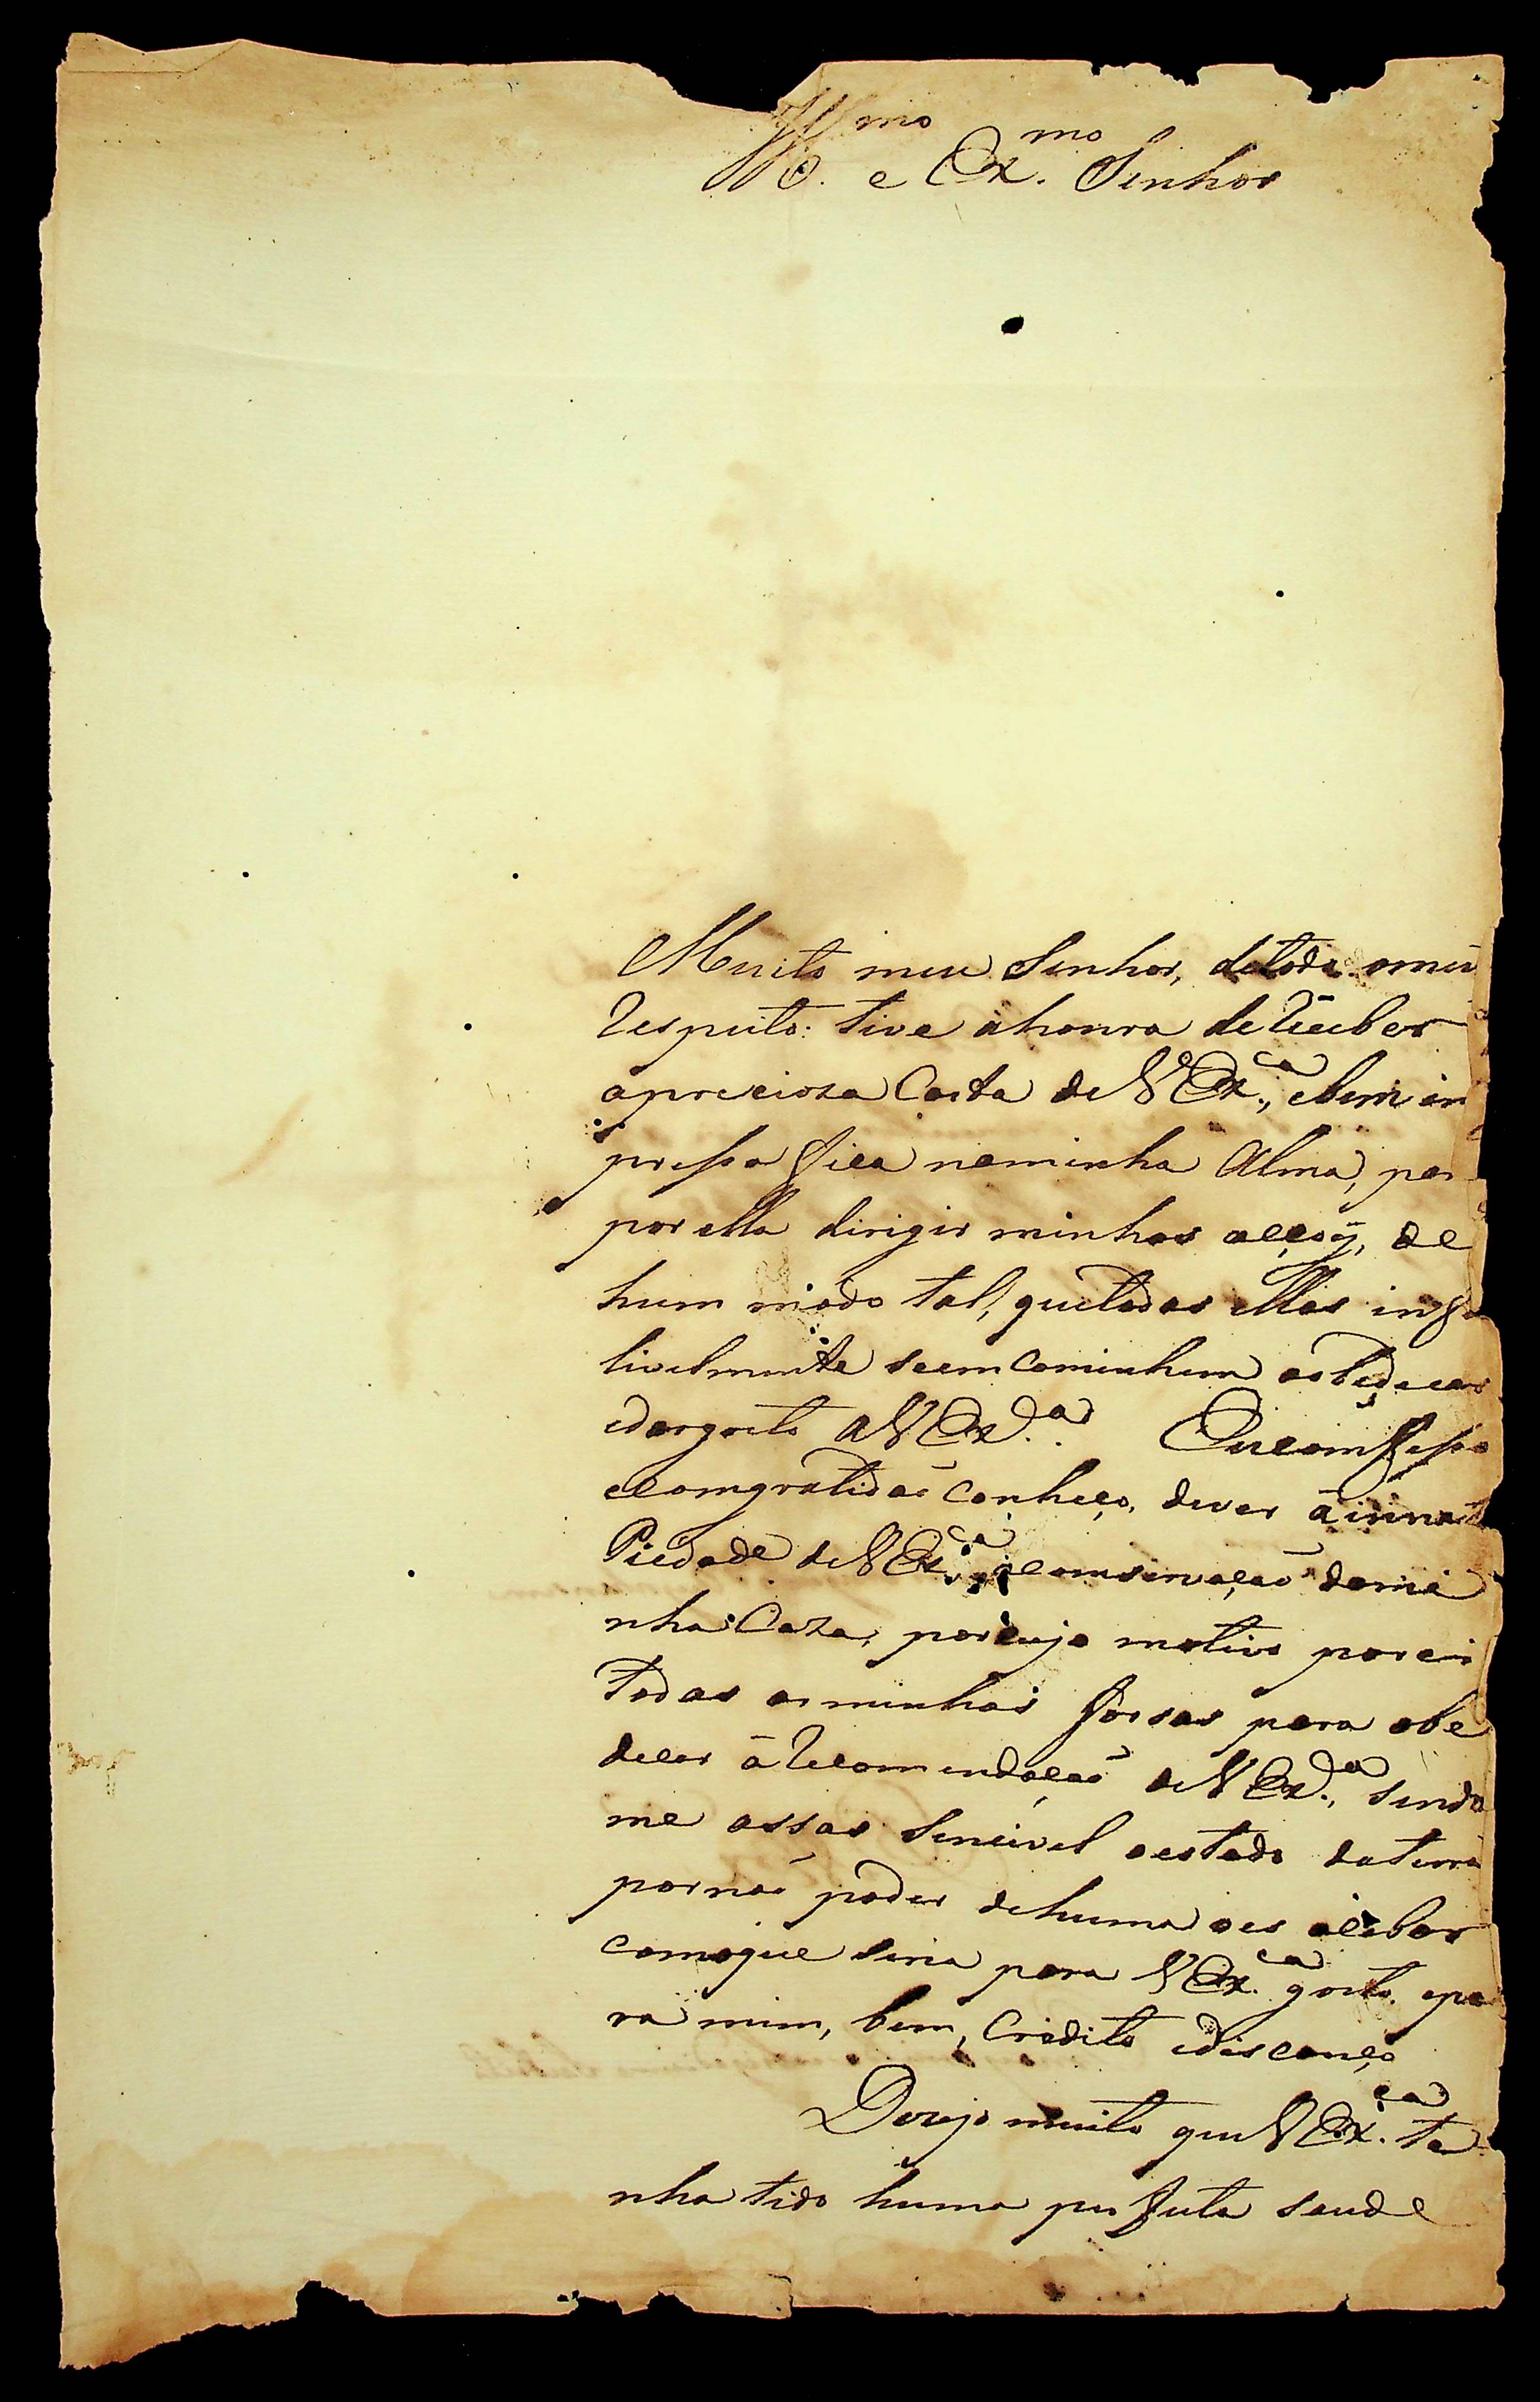 Ill.mo e Ex.mo Senhor
Muito meu Senhor, detodo omeu
Respeito: tive ahonra deReceber
aprecioza Carta de V Ex.ca, ebem im
pressa fica naminha Alma, para
por ella dirigir minhas acçoẽs, de
hum modo tal, quetodas ellas infa
livelmente seemcaminhem aobedecer
edargosto a V Ex.ca. Eu comfesso
ecomgratidaõ conheço, dever áinnata
Piedade de V Ex.ca aComservaçaõ dami
nha Caza, porcujo motivo porei
todas asminhas forsas para obe
decer áRecomendaçaõ de V Ex.ca, sendo
me assas sencivel oestado daterra
pornaõ poder dehuma ves acabar
comoque seria para V Ex.ca gosto, epa
ra mim, bem, Credito edescanço
Dezejo muito que V Ex.ca te
nha tido huma perfeita saude